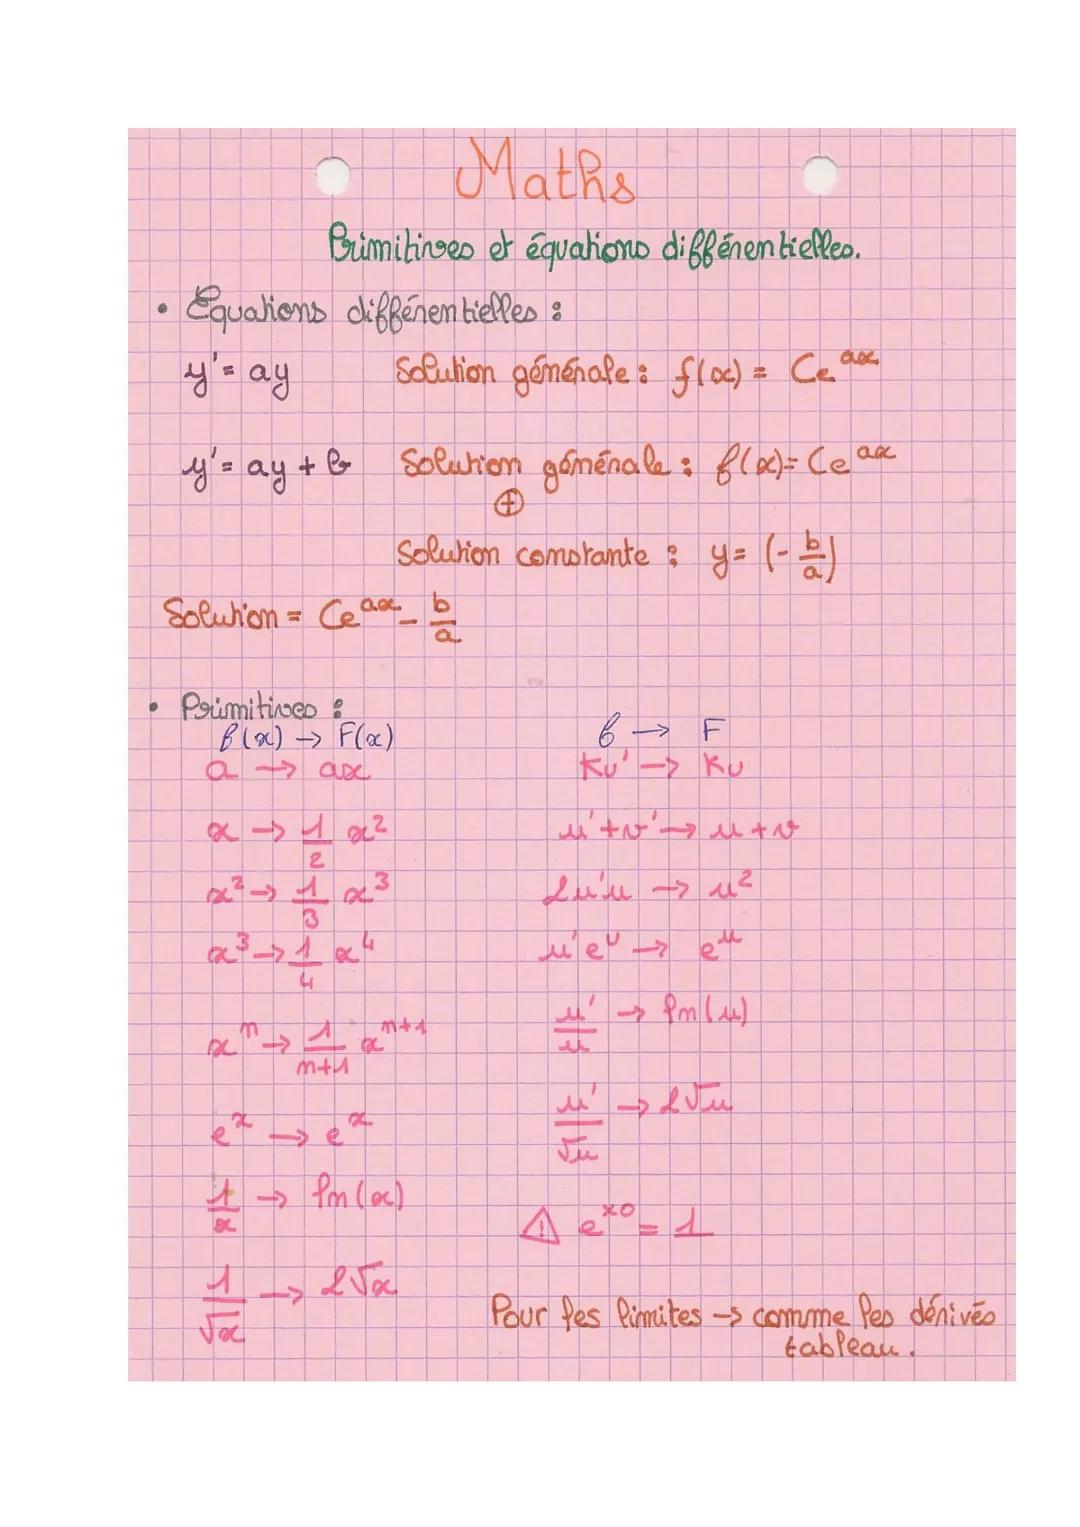 Maths
Primitives et équations différentielles.
• Equations différentielles :
y' = ay Solution générale : f(x) = Ce^ax
y' = ay + b Solution générale : f(x) = Ce^ax
⊕
Solution constante : y = (-b/a)
Solution = Ce^ax - b/a
• Primitives :
f(x) → F(x)
a → ax
x → 1/2 x²
x² → 1/3 x³
x³ → 1/4 x⁴
x^n → 1/(n+1) x^(n+1)
e^x → e^x
1/x → ln(x)
1/√x → 2√x
f → F
Ku' → Ku
u' + v' → u + v
2u'u → u²
u'e^u → e^u
u'/u → ln(u)
u'/√u → 2√u
⚠ e^x0 = 1
Pour les limites → comme les dérivés
tableau.